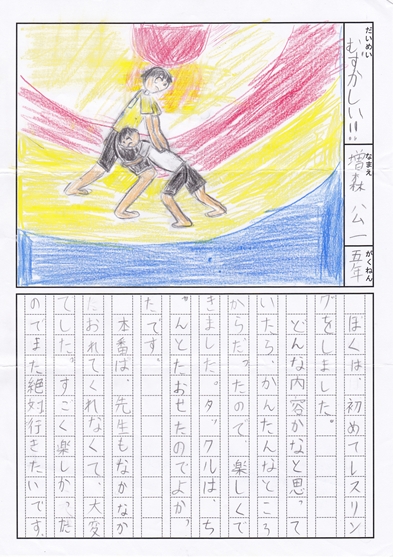 だいめい
むずかしい!!
なまえ
増森 公一
がくねん
五年
ぼくは、初めてレスリン
グをしました。
どんな内容かなと思って
いたら、かんたんなところ
からだったので、楽しくで
きました。タックルは、ち
ゃんとたおせたのでよかっ
たです。
本番は、先生もなかなか
たおれてくれなくて、大変
でした。すごく楽しかった
のでまた絶対行きたいです。